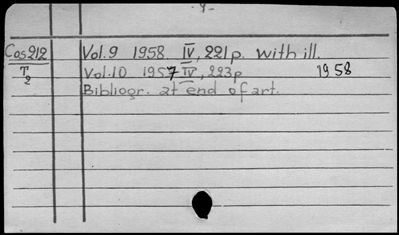 -4-
Cos212 Vol.9 1958 IV, 221p. with ill.
T2 Vol.10 1957 IV, 223p 1958
Bibliogr. at end of art.